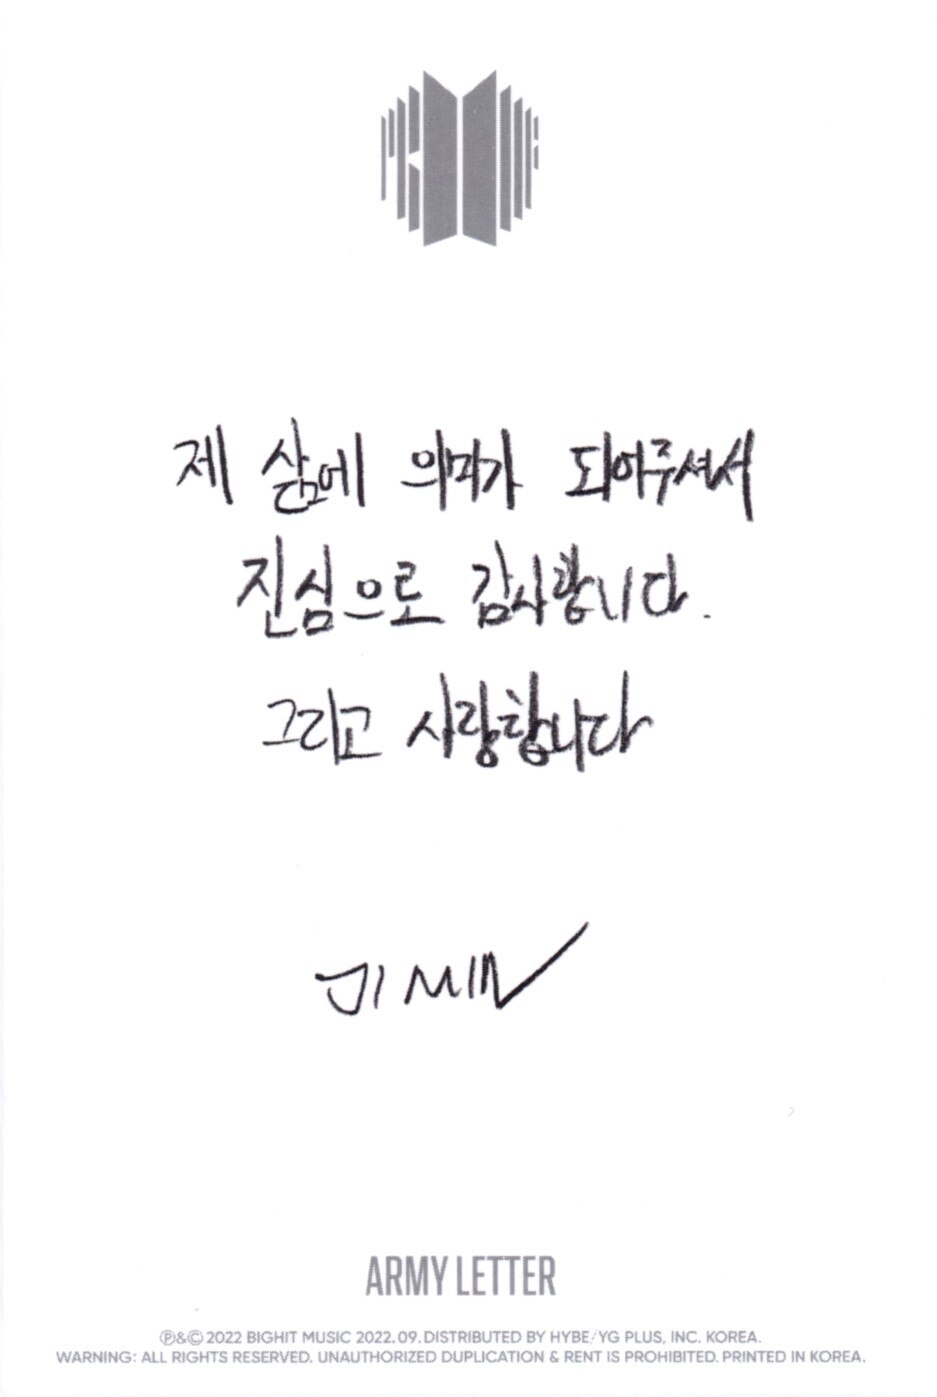 PROOF
제 삶에 의미가 되어주셔서
진심으로 감사합니다.
그리고 사랑합니다
JIMIN
ARMY LETTER
Ⓟ&Ⓒ 2022 BIGHIT MUSIC 2022. 09. DISTRIBUTED BY HYBE/YG PLUS, INC. KOREA.
WARNING: ALL RIGHTS RESERVED. UNAUTHORIZED DUPLICATION & RENT IS PROHIBITED. PRINTED IN KOREA.